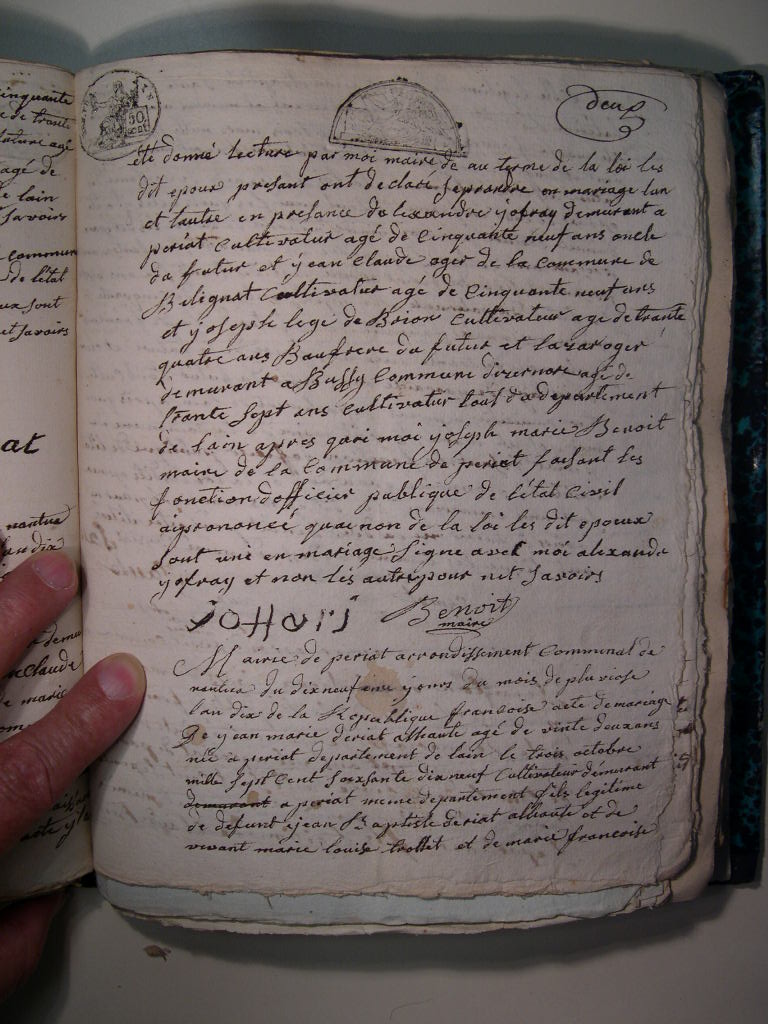 deux
été donné lecture par moi maire de au terme de la loi les
dit epoux presant ont declaré se prandre en mariage lun
et lautre en presance de lexandre yofray demurant a
periat Cultivatur agé de Cinquante neuf ans oncle
du futur et yean Claude oger de la Commune de
Belignat Cultivatur agé de Cinquante neuf ans
et yoseph legé de Brion Cultivateur age de trante
quatre ans Baufrere du futur et lazar oger
demurant a Bussy Commune dizernore agé de
trante sept ans Cultivatur tout du departement
de lain apres quoi moi yoseph marie Benoit
maire de la Commune de periat faisant les
fonction dofficier publique de létat Civil
ay prononcé quae non de la loi les dit epoux
sont uni en mariage signe avec moi alexandre
yofray et non les autre pour net savoirs
Benoit
maire
Mairie de periat arrondissement Communal de
nantua du dixneufieme yours du mois de pluviose
lan dix de la Republique francoise acte de mariage
De yean marie deriat alhaute agé de vinte deux ans
née a periat departement de lain le trois octobre
mille sept Cent soixsante dixneuf Cultivateur demurant
demurant a periat meme departement fils legitime
de defunt yean Bt aptiste deriat alhaute et de
vivant marie louise trollet et de marie francoise
inquante
de trante
agé de
lain
savoirs
Commun
de létat
sont
et savoirs
at
nantua
lan dix
Claude
marie
50
cent